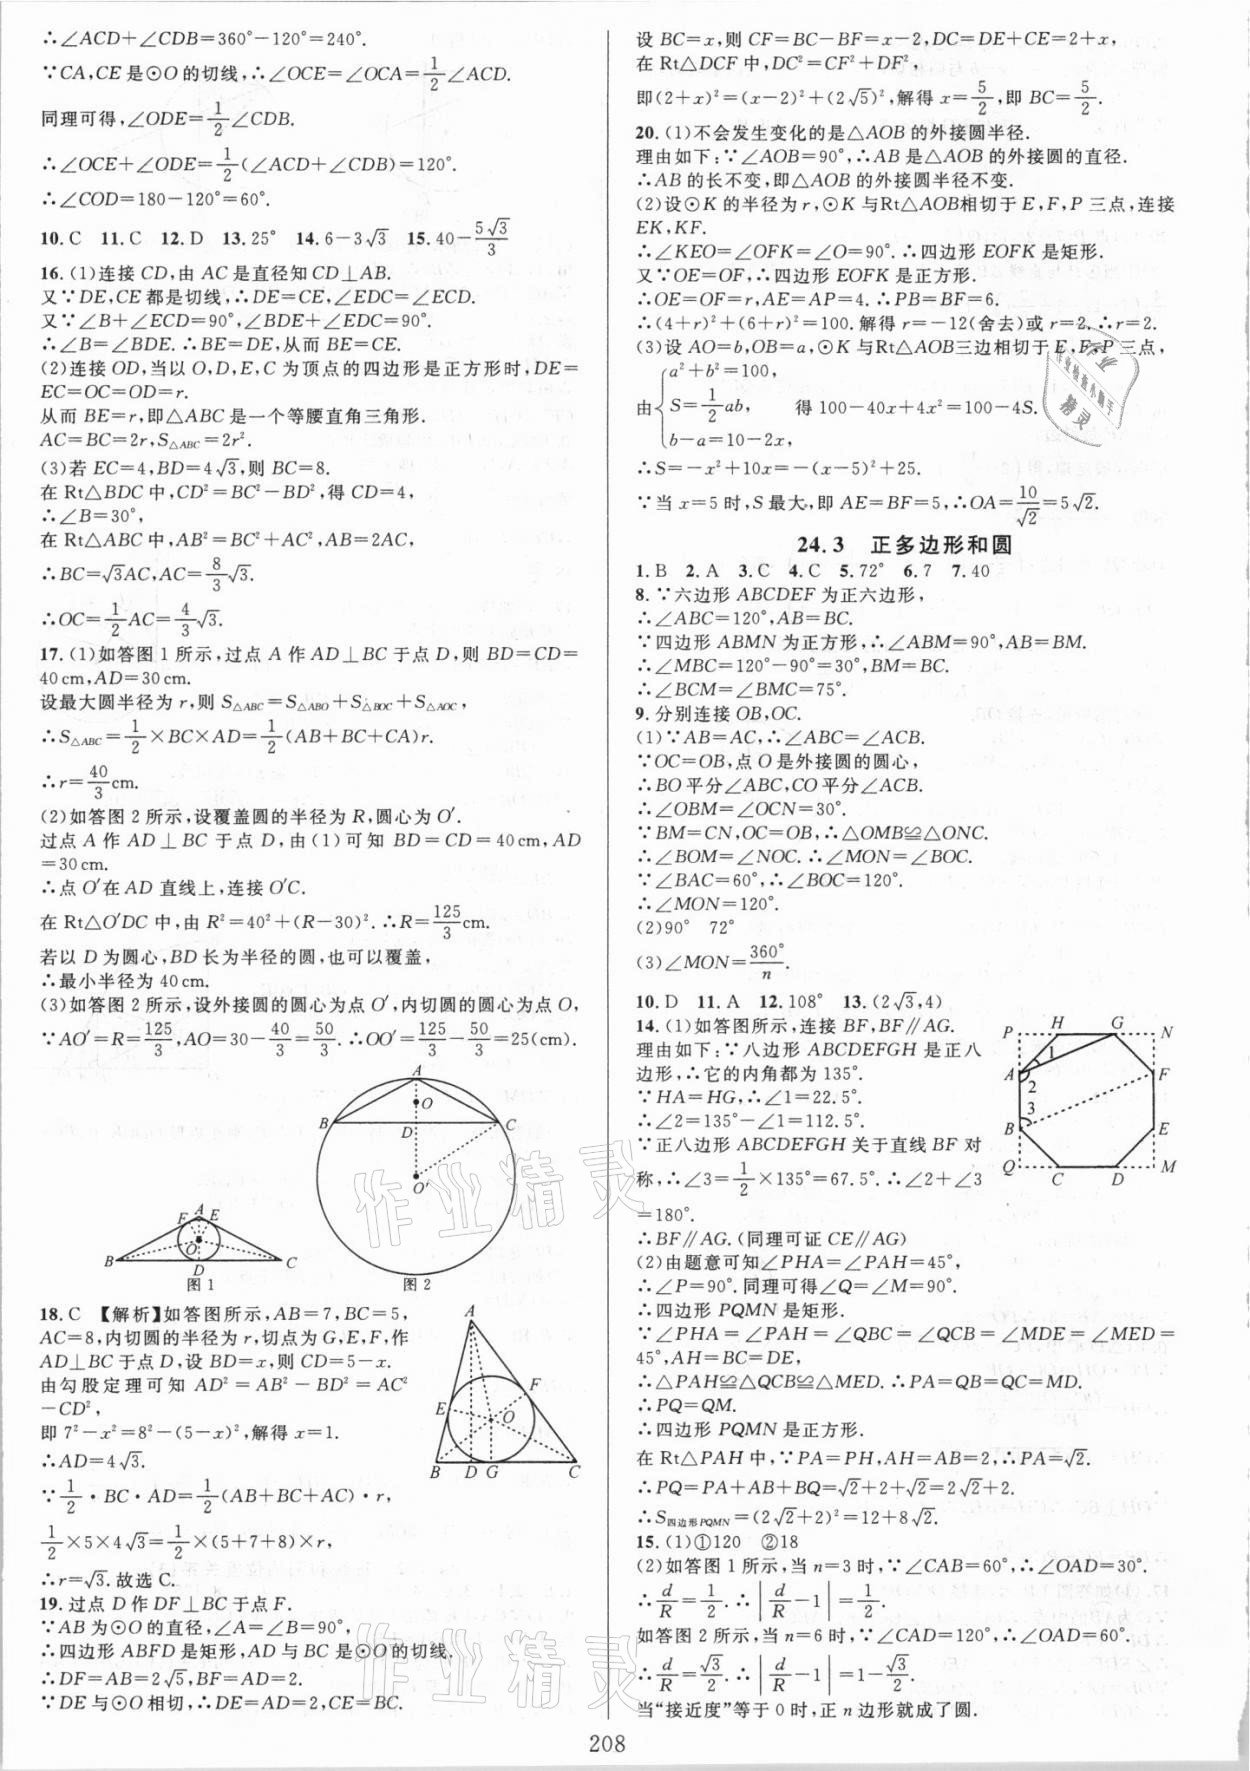 ∴∠ACD+∠CDB=360°-120°=240°.
∵CA,CE是⊙O的切线,∴∠OCE=∠OCA=1/2∠ACD.
同理可得,∠ODE=1/2∠CDB.
∴∠OCE+∠ODE=1/2(∠ACD+∠CDB)=120°.
∴∠COD=180-120°=60°.
10. C 11. C 12. D 13. 25° 14. 6-3√3 15. 40-5√3/3
16. (1)连接CD,由AC是直径知CD⊥AB.
又∵DE,CE都是切线,∴DE=CE,∠EDC=∠ECD.
又∵∠B+∠ECD=90°,∠BDE+∠EDC=90°.
∴∠B=∠BDE.∴BE=DE,从而BE=CE.
(2)连接OD,当以O,D,E,C为顶点的四边形是正方形时,DE=
EC=OC=OD=r.
从而BE=r,即△ABC是一个等腰直角三角形.
AC=BC=2r,S△ABC=2r².
(3)若EC=4,BD=4√3,则BC=8.
在Rt△BDC中,CD²=BC²-BD²,得CD=4,
∴∠B=30°,
在Rt△ABC中,AB²=BC²+AC²,AB=2AC,
∴BC=√3AC,AC=8/3√3.
∴OC=1/2AC=4/3√3.
17. (1)如答图1所示,过点A作AD⊥BC于点D,则BD=CD=
40 cm,AD=30 cm.
设最大圆半径为r,则S△ABC=S△ABO+S△BOC+S△AOC,
∴S△ABC=1/2×BC×AD=1/2(AB+BC+CA)r.
∴r=40/3 cm.
(2)如答图2所示,设覆盖圆的半径为R,圆心为O′.
过点A作AD⊥BC于点D,由(1)可知BD=CD=40 cm,AD
=30 cm.
∴点O′在AD直线上,连接O′C.
在Rt△O′DC中,由R²=40²+(R-30)².∴R=125/3 cm.
若以D为圆心,BD长为半径的圆,也可以覆盖,
∴最小半径为40 cm.
(3)如答图2所示,设外接圆的圆心为点O′,内切圆的圆心为点O,
∵AO′=R=125/3,AO=30-40/3=50/3.∴OO′=125/3-50/3=25(cm).
A
O
B D C
O′
F A E
O
B D C
图1 图2
18. C 【解析】如答图所示,AB=7,BC=5,
AC=8,内切圆的半径为r,切点为G,E,F,作
AD⊥BC于点D,设BD=x,则CD=5-x.
由勾股定理可知AD²=AB²-BD²=AC²
-CD²,
即7²-x²=8²-(5-x)²,解得x=1.
∴AD=4√3.
∵1/2·BC·AD=1/2(AB+BC+AC)·r,
1/2×5×4√3=1/2×(5+7+8)×r,
∴r=√3.故选C.
A
F
E O
B D G C
19. 过点D作DF⊥BC于点F.
∵AB为⊙O的直径,∠A=∠B=90°,
∴四边形ABFD是矩形,AD与BC是⊙O的切线.
∴DF=AB=2√5,BF=AD=2.
∵DE与⊙O相切,∴DE=AD=2,CE=BC.
设BC=x,则CF=BC-BF=x-2,DC=DE+CE=2+x,
在Rt△DCF中,DC²=CF²+DF²,
即(2+x)²=(x-2)²+(2√5)²,解得x=5/2,即BC=5/2.
20. (1)不会发生变化的是△AOB的外接圆半径.
理由如下:∵∠AOB=90°,∴AB是△AOB的外接圆的直径.
∴AB的长不变,即△AOB的外接圆半径不变.
(2)设⊙K的半径为r,⊙K与Rt△AOB相切于E,F,P三点,连接
EK,KF.
∴∠KEO=∠OFK=∠O=90°.∴四边形EOFK是矩形.
又∵OE=OF,∴四边形EOFK是正方形.
∴OE=OF=r,AE=AP=4.∴PB=BF=6.
∴(4+r)²+(6+r)²=100.解得r=-12(舍去)或r=2.∴r=2.
(3)设AO=b,OB=a,⊙K与Rt△AOB三边相切于E,F,P三点,
a²+b²=100,
由 S=1/2ab, 得100-40x+4x²=100-4S.
b-a=10-2x,
∴S=-x²+10x=-(x-5)²+25.
∵当x=5时,S最大,即AE=BF=5,∴OA=10/√2=5√2.
24.3 正多边形和圆
1. B 2. A 3. C 4. C 5. 72° 6. 7 7. 40
8. ∵六边形ABCDEF为正六边形,
∴∠ABC=120°,AB=BC.
∵四边形ABMN为正方形,∴∠ABM=90°,AB=BM.
∴∠MBC=120°-90°=30°,BM=BC.
∴∠BCM=∠BMC=75°.
9. 分别连接OB,OC.
(1)∵AB=AC,∴∠ABC=∠ACB.
∵OC=OB,点O是外接圆的圆心,
∴BO平分∠ABC,CO平分∠ACB.
∴∠OBM=∠OCN=30°.
∵BM=CN,OC=OB,∴△OMB≌△ONC.
∴∠BOM=∠NOC.∴∠MON=∠BOC.
∵∠BAC=60°,∴∠BOC=120°.
∴∠MON=120°.
(2)90° 72°
(3)∠MON=360°/n.
10. D 11. A 12. 108° 13. (2√3,4)
14. (1)如答图所示,连接BF,BF∥AG.
理由如下:∵八边形ABCDEFGH是正八
边形,∴它的内角都为135°.
∵HA=HG,∴∠1=22.5°.
∴∠2=135°-∠1=112.5°.
∵正八边形ABCDEFGH关于直线BF对
称,∴∠3=1/2×135°=67.5°.∴∠2+∠3
=180°.
P H G N
1
A 2 F
3
B E
Q C D M
∴BF∥AG.(同理可证CE∥AG)
(2)由题意可知∠PHA=∠PAH=45°,
∴∠P=90°.同理可得∠Q=∠M=90°.
∴四边形PQMN是矩形.
∵∠PHA=∠PAH=∠QBC=∠QCB=∠MDE=∠MED=
45°,AH=BC=DE,
∴△PAH≌△QCB≌△MED.∴PA=QB=QC=MD.
∴PQ=QM.
∴四边形PQMN是正方形.
在Rt△PAH中,∵PA=PH,AH=AB=2,∴PA=√2.
∴PQ=PA+AB+BQ=√2+2+√2=2√2+2.
∴S四边形PQMN=(2√2+2)²=12+8√2.
15. (1)①120 ②18
(2)如答图1所示,当n=3时,∵∠CAB=60°,∴∠OAD=30°.
∴d/R=1/2.∴|d/R-1|=1/2.
如答图2所示,当n=6时,∵∠CAD=120°,∴∠OAD=60°.
∴d/R=√3/2.∴|d/R-1|=1-√3/2.
当“接近度”等于0时,正n边形就成了圆.
208
作业精灵
作业精灵